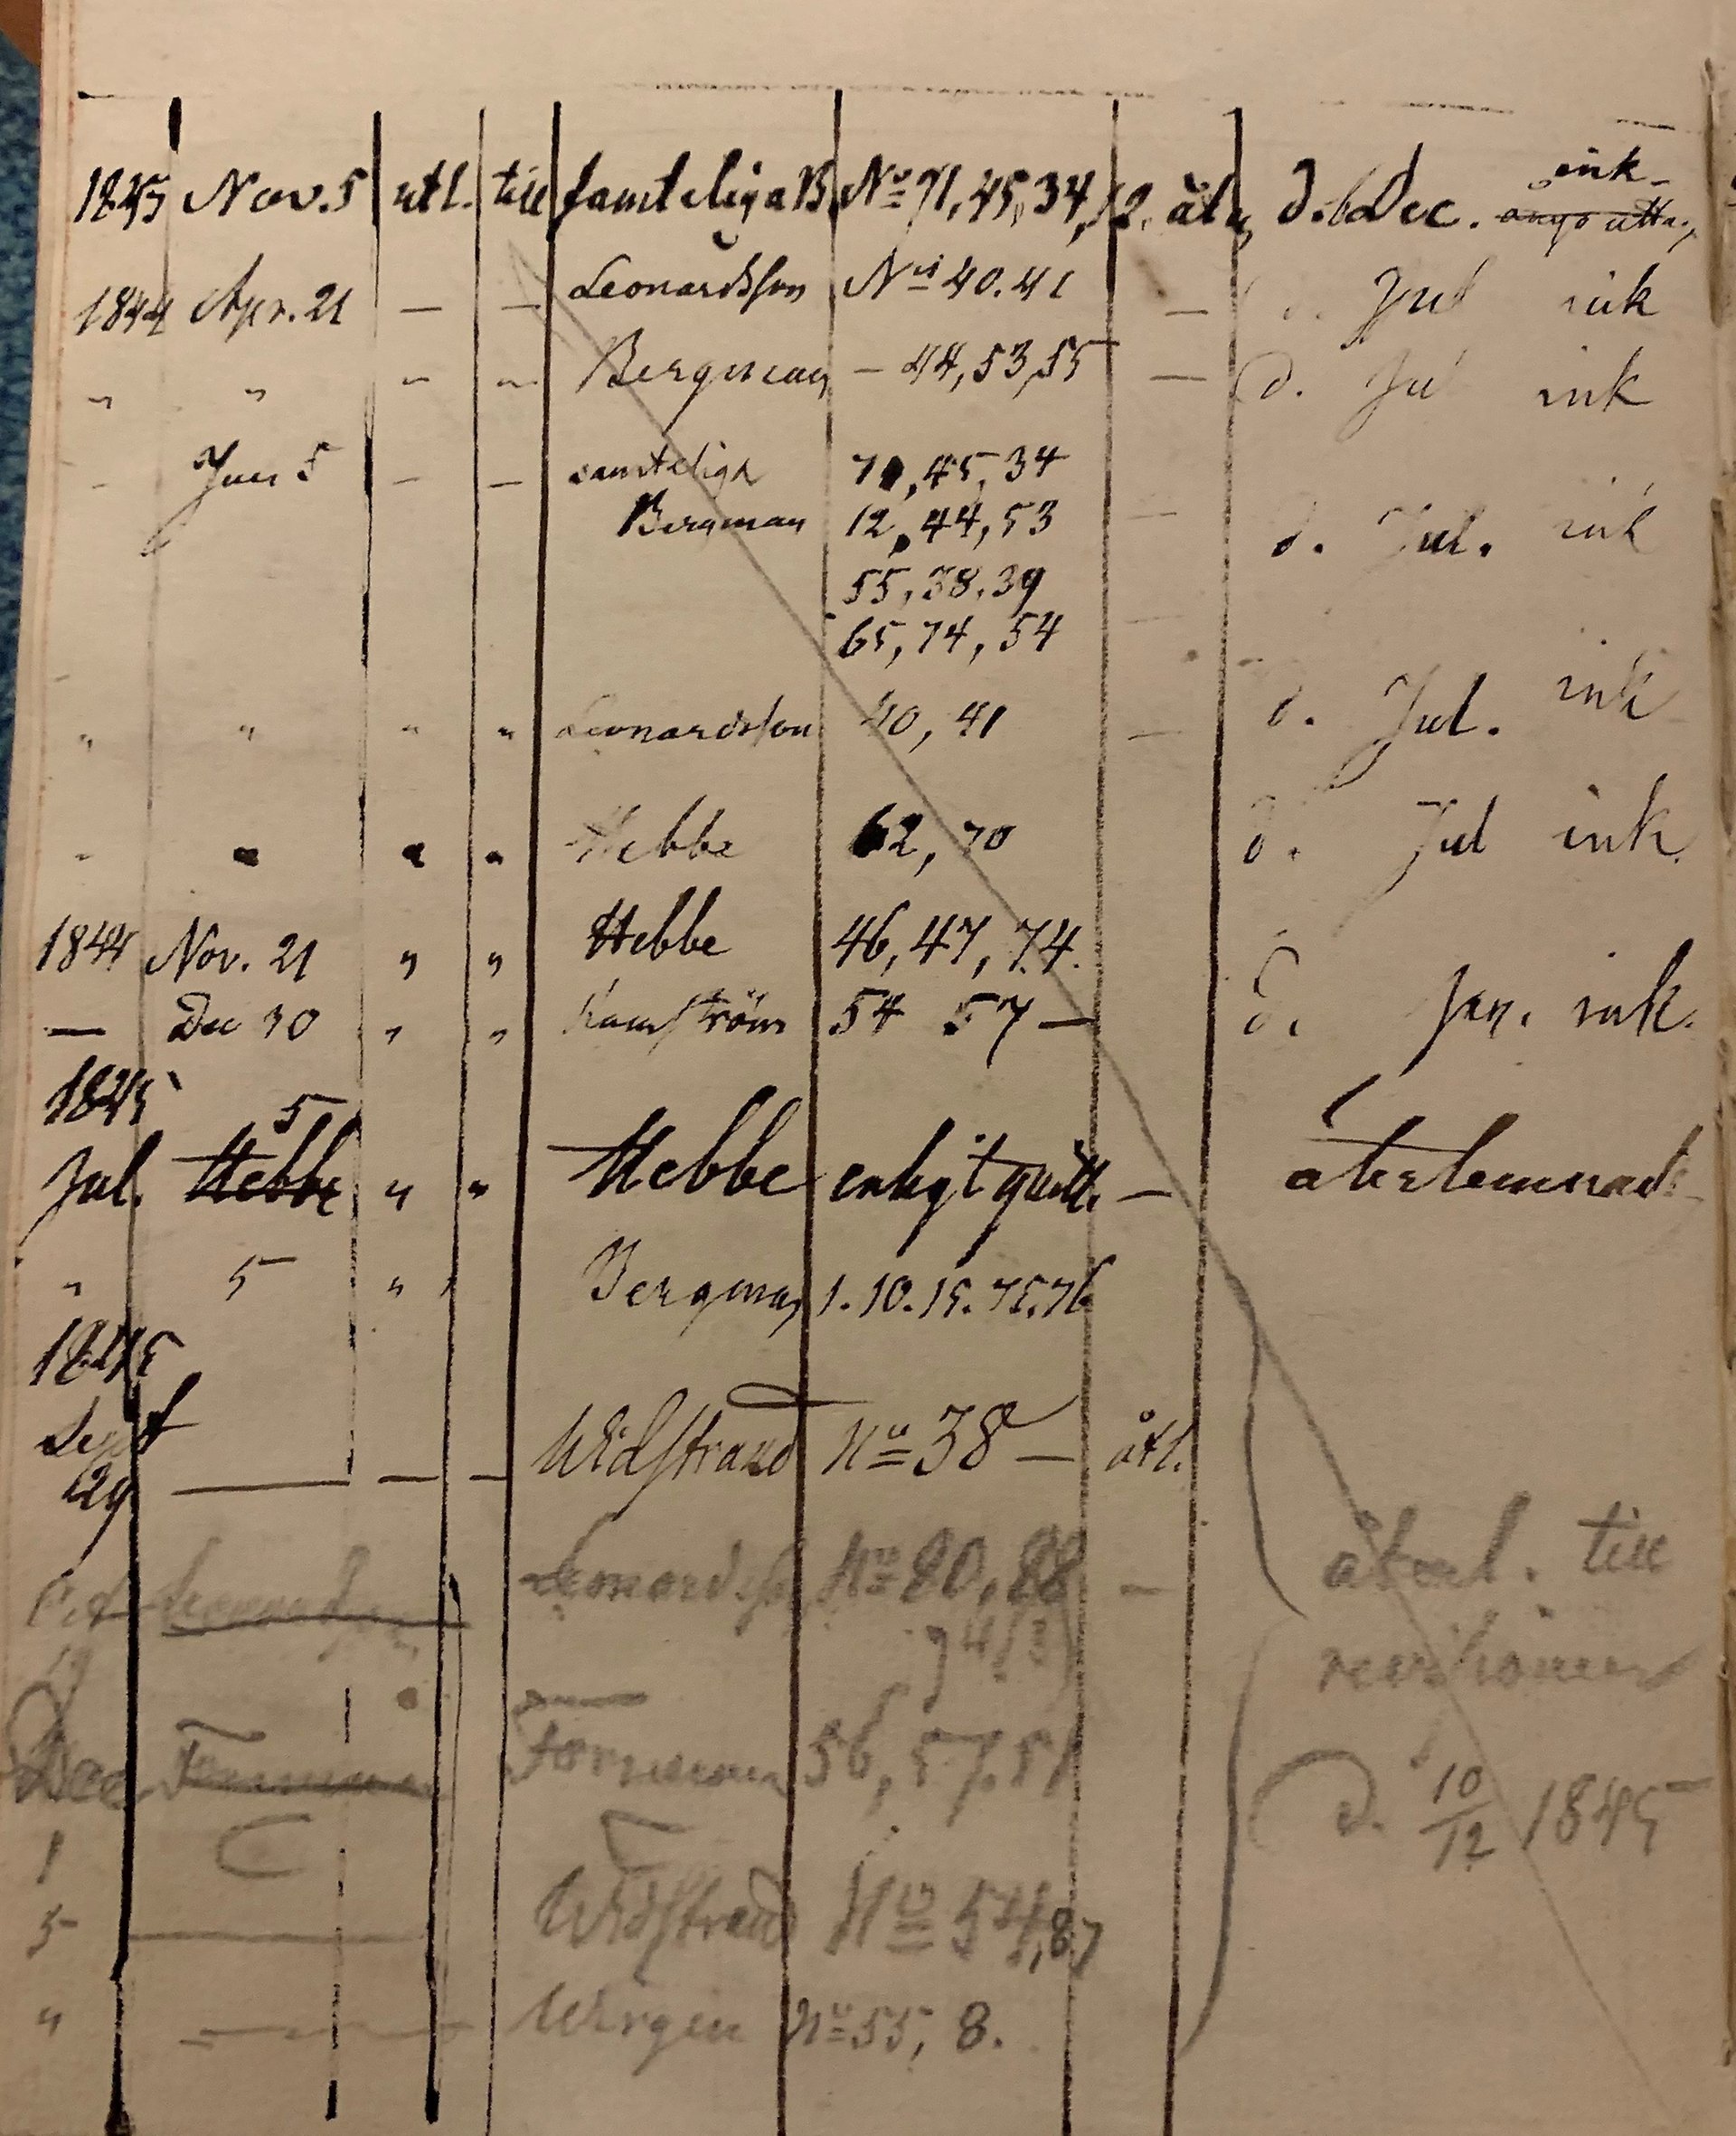 ink
1843 Nov. 5 utl. till samteliga B. No 71, 45, 34, 12. åt. d. 6 Dec.
1844 Apr. 21 — — Leonardsson No 40. 41 — d. Jul ink
„ „ „ „ Bergman — 44, 53, 55 — d. Jul ink
„ Jun 5 — — samtelige 71, 45, 34
Bergman 12, 44, 53 — d. Jul. ink
55, 38, 39
65, 74, 54
„ „ „ „ Leonardsson 40, 41 — d. Jul. ink
„ „ „ „ Hebbe 62, 70 d. Jul ink.
1844 Nov. 21 „ „ Hebbe 46, 47, 74.
— Dec 30 „ „ 54 57 — d. Jan. ink.
1845
5
Jul. Hebbe „ „ Hebbe enligt quitt. — återlemnade
„ 5 „ „ Bergman 1. 10. 15. 75. 76
1845
Sept
29 — — — Widstrand No 38 — åtl.
Oct Leonardsson No 80, 88 — återl. till
19
Dec Forssman 56, 57. 51
1 d. 10/12 1845
5 — Widstrand No 54, 87
„ — No 55, 8.